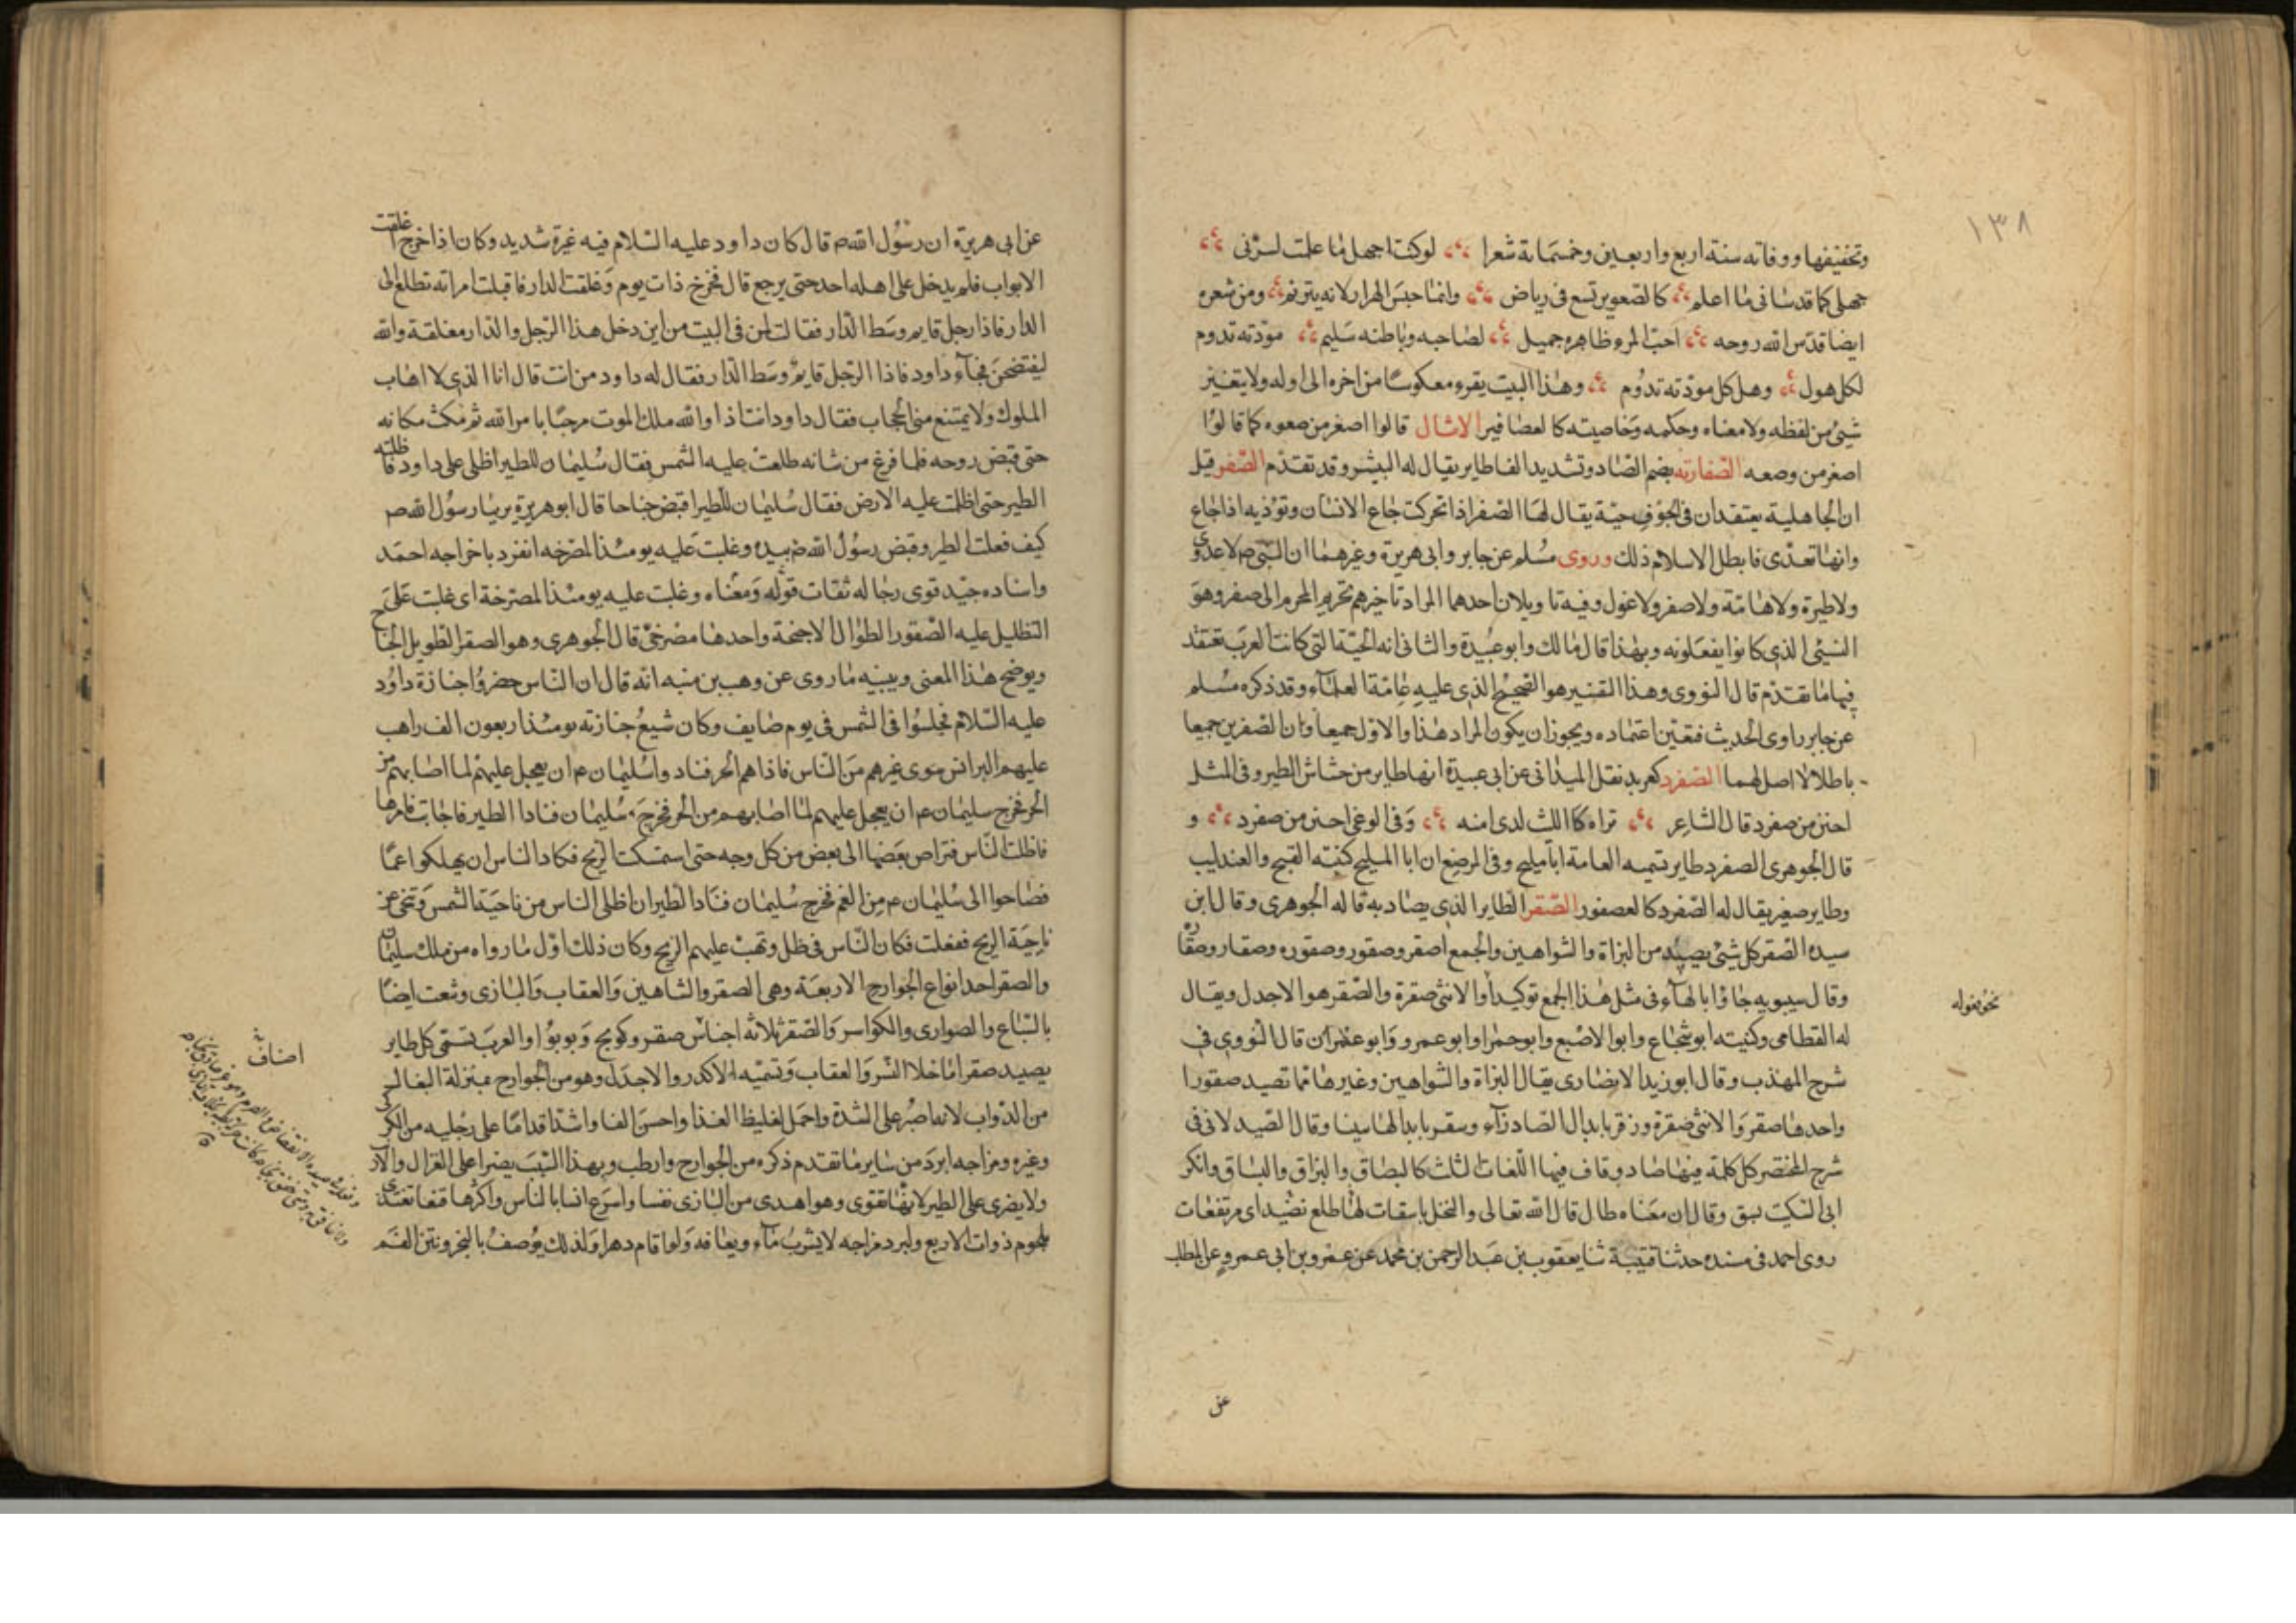 ١٣٨
وتخفيفها ووفاته سنة اربع واربعين وخمسماية شعرا لو كنت اجهل ما علمت لسرني
جهلي كما قد ساني ما اعلم كالصعو يرتع في رياض وانما حبس الهزار لانه يترنم ومن شعره
ايضا قدس الله روحه احب المرء ظاهره جميل لصاحبه وباطنه سليم مودته تدوم
لكل هول وهل كل مودته تدوم وهذا البيت يقرء معكوسا من اخره الى اوله ولا يتغير
شيئ من لفظه ولا معناه وحكمه وخاصيته كالعصافير الامثال قالوا اصغر من صعوه كما قالوا
اصغر من وصعه الصفارته بضم الصاد وتشديد الفا طاير يقال له البشر وقد تقدم الصفر قيل
ان الجاهلية يعتقدان في الجوف حية يقال لها الصفر اذا تحركت جاع الانسان وتؤذيه اذا جاع
وانها تعدى فابطل الاسلام ذلك وروى مسلم عن جابر وابي هريرة وغيرهما ان النبي صم لا عدوى
ولا طيرة ولا هامة ولا صفر ولا غول وفيه تاويلان احدهما المراد تاخيرهم تحريم المحرم الى صفر وهو
النسئي الذي كانوا يفعلونه وبهذا قال مالك وابو عبيدة والثاني انه الحية التي كانت العرب تعتقد
فيها ما تقدم قال النووي وهذا التفسير هو الصحيح الذي عليه عامة العلماء وقد ذكره مسلم
عن جابر راوى الحديث فتعين اعتماده ويجوز ان يكون المراد هذا والاول جميعا وان الصفرين جميعا
باطلالا اصل لهما الصفرد كعربد نقل الميداني عن ابي عبيدة انها طاير من خشاش الطير وفي المثل
اجبن من صفرد قال الشاعر تراه كالليث لدى امنه وفي الوغى اجبن من صفرد و
قال الجوهري الصفرد طاير تسميه العامة ابا مليح وفي المرضع ان ابا المليح كنيته القبج والعندليب
وطاير صغير يقال له الصفرد كالعصفور الصقر الطاير الذي يصاد به قاله الجوهري وقال ابن
سيده الصقر كل شيئ يصيد من البزاة والشواهين والجمع اصقر وصقور وصقوره وصقار وصقارة
وقال سيبويه جاؤا بالهاء في مثل هذا الجمع توكيدا والانثى صقرة والصقر هو الاجدل ويقال
نحو بعوله
له القطامى وكنيته ابو شجاع وابو الاصبع وابو حمرا وابو عمرو وابو عمران قال النووي في
شرح المهذب وقال ابو زيد الانصارى يقال البزاة والشواهين وغيرها مما تصيد صقورا
واحدها صقر والانثى صقرة وزقر بابدال الصاد زآء وسقر بابدالها سينا وقال الصيدلانى في
شرح المختصر كل كلمة فيها صاد وقاف فيها اللغات الثلث كالبصاق والبزاق والبساق وانكر
ابن السكيت بسق وقال ان معناه طال قال الله تعالى والنخل باسقات لها طلع نضيد اى مرتفعات
روى احمد في مسنده حدثنا قتيبة ثنا يعقوب بن عبد الرحمن بن محمد عن عمرو بن ابي عمرو عن المطلب
عن
عن ابي هريرة ان رسول الله صم قال كان داود عليه السلام فيه غيرة شديد وكان اذا خرج اغلقت
الابواب فلم يدخل على اهله احد حتى يرجع قال فخرج ذات يوم وغلقت الدار فاقبلت امراته تطلع الى
الدار فاذا رجل قايم وسط الدار فقالت لمن في البيت من اين دخل هذا الرجل والدار مغلقة والله
ليفتضحن فجآء داود فاذا الرجل قايم وسط الدار فقال له داود من انت قال انا الذي لا اهاب
الملوك ولا يمتنع مني الحجاب فقال داود انت اذا والله ملك الموت مرحبا بامر الله ثم مكث مكانه
حتى قبض روحه فلما فرغ من شانه طلعت عليه الشمس فقال سليمان للطير اظلى على داود فاظلته
الطير حتى اظلت عليه الارض فقال سليمان للطير اقبض جناحا قال ابو هريرة يرينا رسول الله صم
كيف فعلت الطير وقبض رسول الله صم بيده وغلبت عليه يومئذ المضرخيه انفرد باخراجه احمد
واسناده جيد قوى رجاله ثقات قوله ومعناه وغلبت عليه يومئذ المضرخة اى غلبت على
التظليل عليه الصقور الطوال الاجنحة واحدها مضرخي قال الجوهري وهو الصقر الطويل الجناح
ويوضح هذا المعنى ويبينه ما روى عن وهب بن منبه انه قال ان الناس حضروا جنازة داود
عليه السلام فجلسوا في الشمس في يوم صايف وكان شيع جنازته يومئذ اربعون الف راهب
عليهم البرانس سوى غيرهم من الناس فاذاهم الحر فنادوا سليمان عم ان يعجل عليهم لما اصابهم من
الحر فخرج سليمان عم ان يعجل عليهم لما اصابهم من الحر فخرج سليمان فنادا الطير فاجابت فامرها
فاظلت الناس فتراص بعضها الى بعض من كل وجه حتى استمسكت الريح فكاد الناس ان يهلكوا غما
فصاحوا الى سليمان عم من الغم فخرج سليمان فنادا الطير ان اظلى الناس من ناحية الشمس وتنحى عن
ناحية الريح ففعلت فكان الناس في ظل وتهب عليهم الريح وكان ذلك اول ما رواه من ملك سليمان
والصقر احد انواع الجوارح الاربعة وهى الصقر والشاهين والعقاب والبازى وتنعت ايضا
بالسباع والصوارى والكواسر والصقر ثلاثه اجناس صقر وكوبج ويويو والعرب تسمى كل طاير
اصناف
يصيد صقرا ما خلا النسر والعقاب وتسميه الاكدر والاجدل وهو من الجوارح بمنزلة البغال
من الدواب لانه اصبر على الشدة واحمل لغليظ الغذا واحسن الفا واشد اقداما على رجليه من الكركي
وغيره ومزاجه ابرد من ساير ما تقدم ذكره من الجوارح وارطب وبهذا السبب يضرا على الغزال والارنب
ولا يضرى على الطير لانها تقوى وهو اهدى من البازى نفسا واسرع انسا بالناس واكثرها قنعا تغتذى
بلحوم ذوات الاربع ولبرد مزاجه لا يشرب مآء ويعافه ولو اقام دهرا ولذلك يوصف بالبخر ونتن الفم